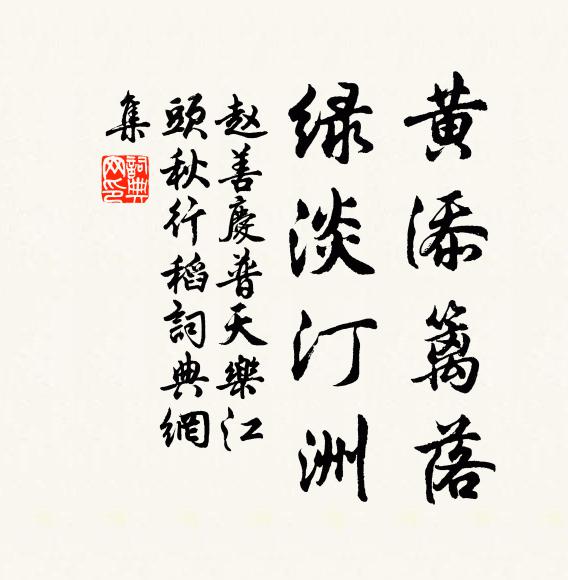 黄添篱落
绿淡汀洲
赵善慶普天樂江
頭秋行稻詞典網
集
詞典
网印